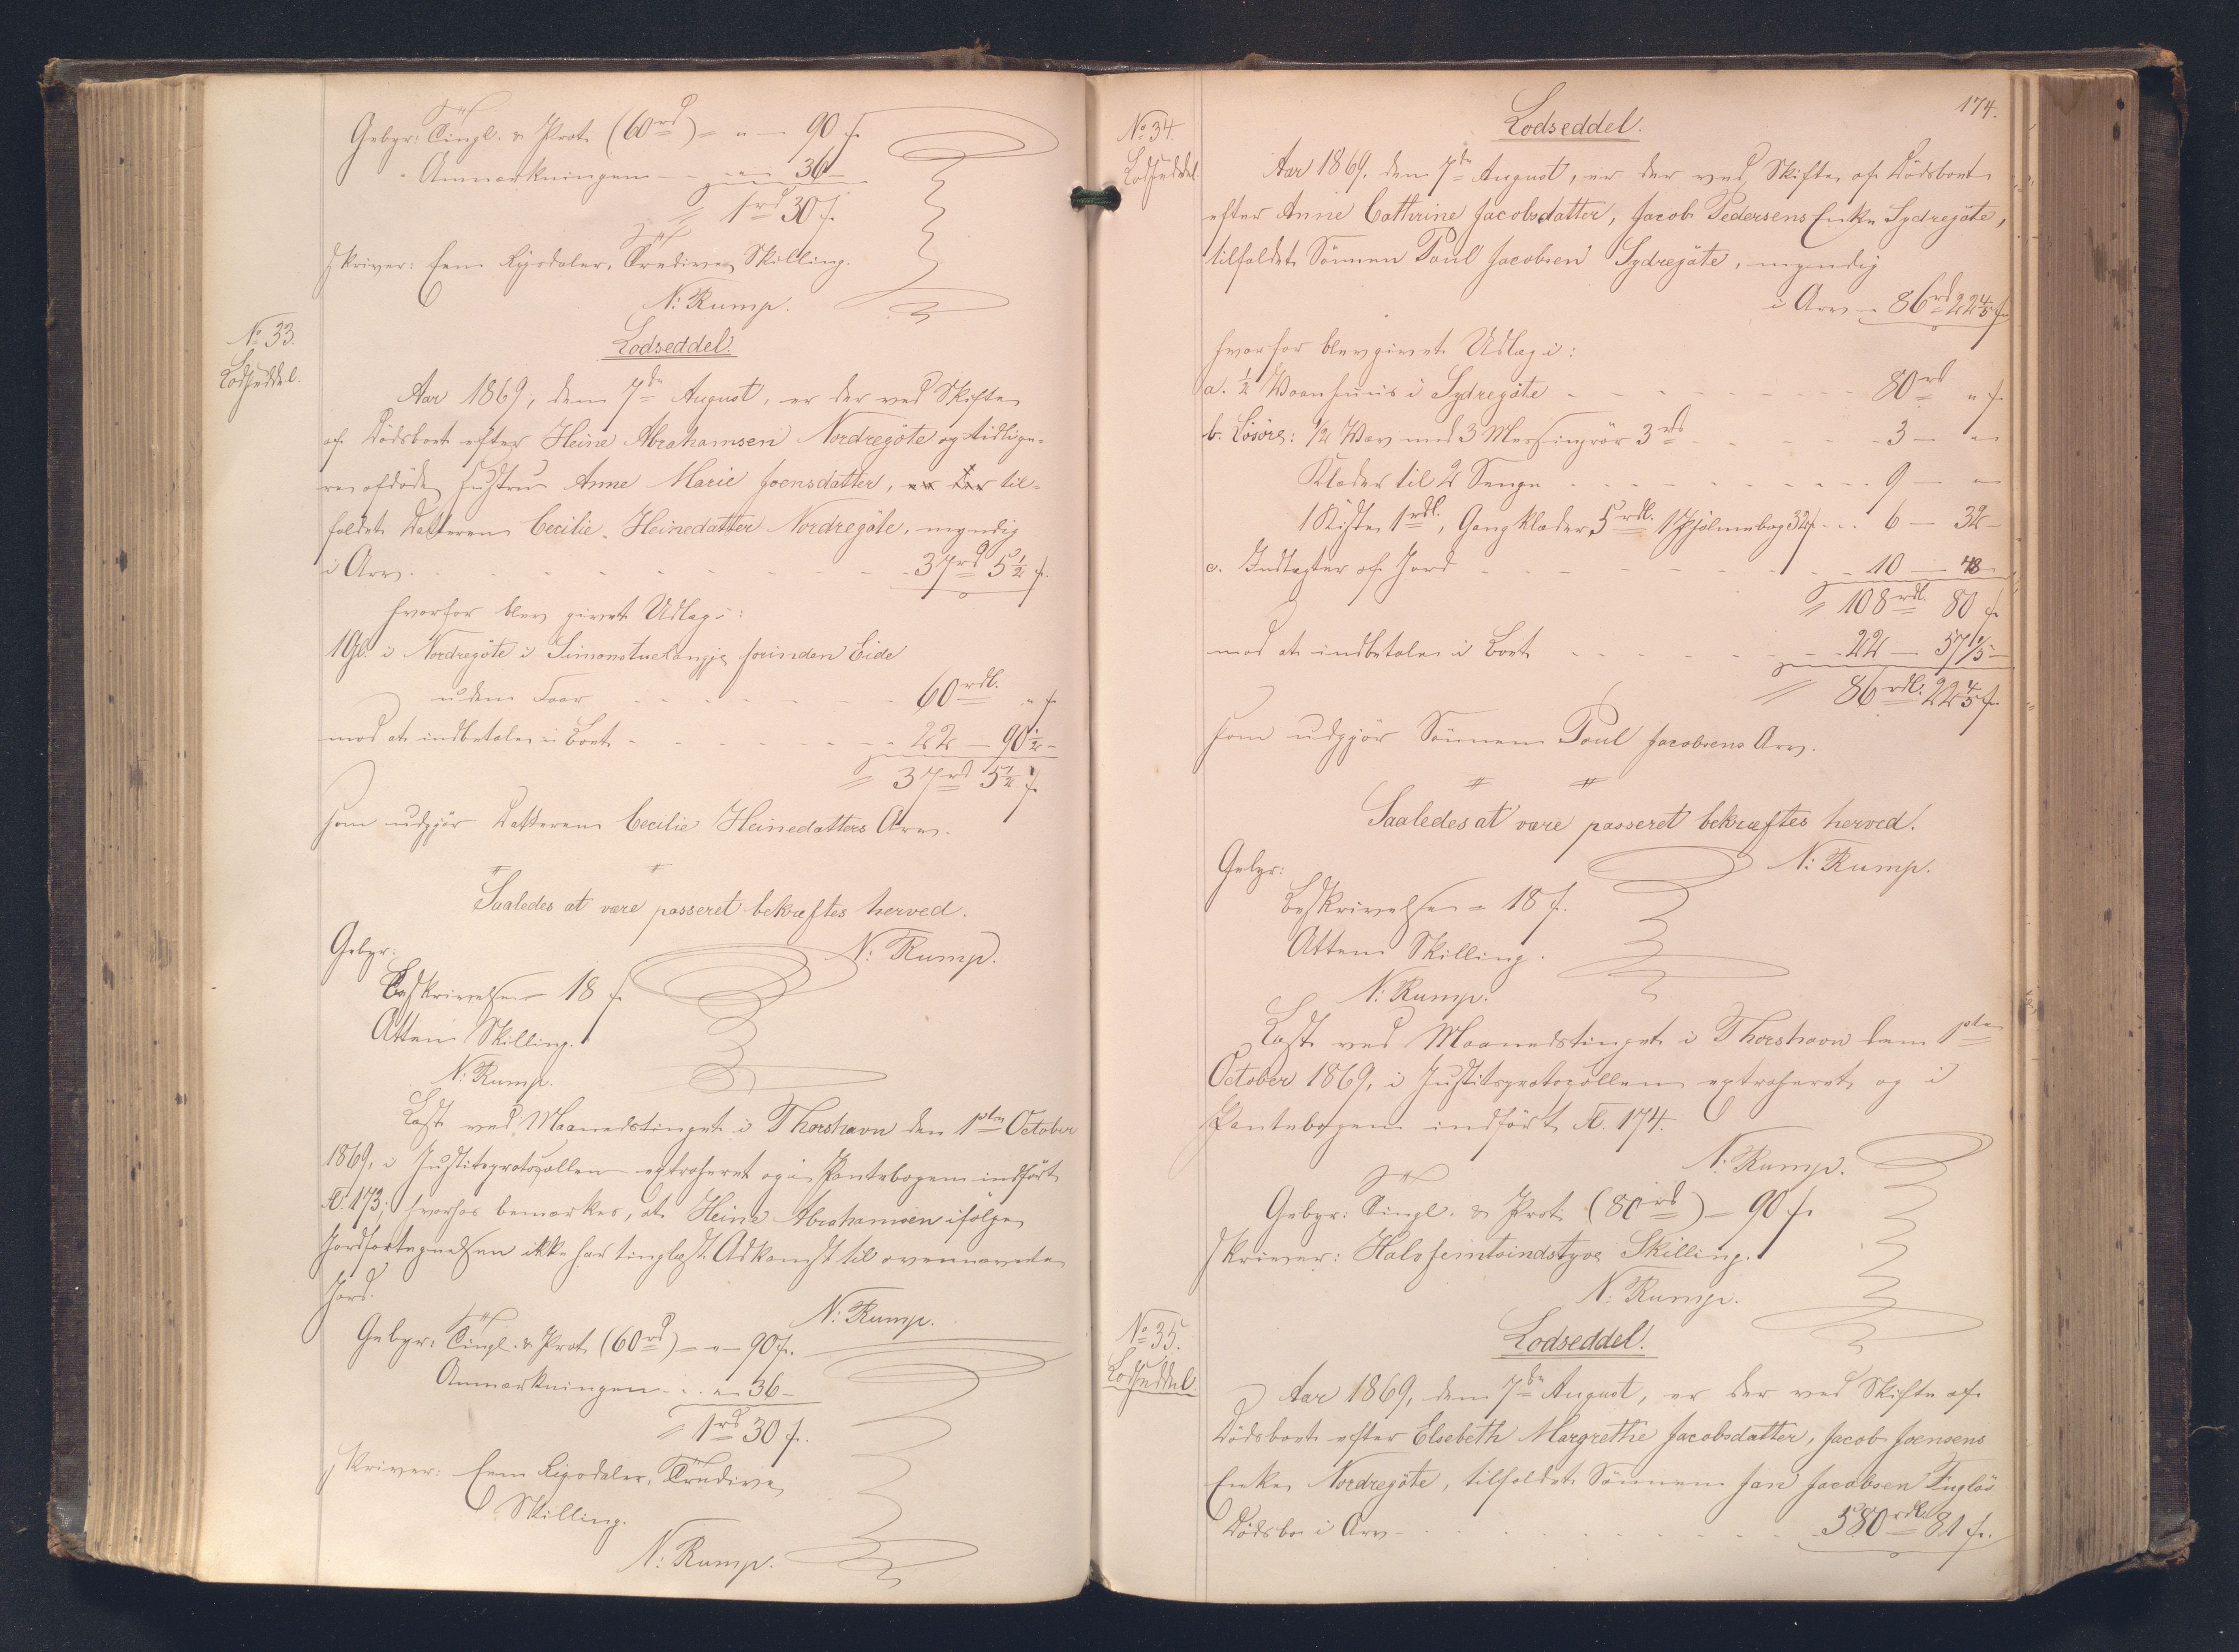 Gebyr: Tingl. & Prot. (60rd) = " — 90 s.
" Anmærkningen — " — 36 —
= 1rd 30 s.
skriver: Een Rigsdaler, Tredive Skilling.
N: Rump.
No 33.
Lodseddel.
Lodseddel.
Aar 1869, den 7de August, er der ved Skifte
af Dödsboet efter Heine Abrahamsen Nordregöte og tidlige-
re afdöde Hustru Anne Marie Joensdatter, er der til-
faldet Datteren Cecilie Heinedatter Nordregöte, myndig
i Arv . . . 37rd 5½ s.
hvorfor blev givet Udlæg i:
1 Gl. i Nordregöte i Simonstuelangje forinden Eide
uden Faar . . . 60rdl. " s
mod at indbetale i Boet . . . 22 — 90½ —
= 37rd 5½ s.
som udgjör Datteren Cecilie Heinedatters Arv.
Saaledes at være passeret bekræftes herved.
N: Rump.
Gebyr:
Beskrivelsen — 18 s.
Atten Skilling.
N: Rump.
Læst ved Maanedstinget i Thorshavn den 1ste October
1869, i Justitsprotocollen extraheret og i Pantebogen indfört
Fl. 173; hvorhos bemærkes, at Heine Abrahamsen ifölge
Jordfortegnelsen ikke har tinglæst Adkomst til ovennævnte
Jord.
N: Rump.
Gebyr: Tingl. & Prot. (60rd) = " — 90 s.
Anmærkningen . . " — 36 —
= 1rd 30 s.
skriver: Een Rigsdaler, Tredive
Skilling.
N: Rump.
174.
No 34.
Lodseddel
Lodseddel.
Aar 1869, den 7de August, er der ved Skifte af Dödsboet
efter Anne Cathrine Jacobsdatter, Jacob Pedersens Enke Sydregöte,
tilfaldet Sönnen Poul Jacobsen Sydregöte, myndig
i Arv — 86rd 22 4/5 s
hvorfor blev givet Udlæg i:
a. ½ Vaanhuus i Sydregöte . . . 80rd " s
b. Lösöre: ½ Væv med 3 Messingrör 3rd . . . 3 — "
Klæder til 2 Senge . . . 9 — "
1 Kiste 1rdl., Gangklæder 5rdl. 1 Psalmebog 32s . . 6 — 32 —
c. Indtægter af Jord . . . 10 — 48
= 108rdl. 80 s
mod at indbetale i Boet . . . 22 — 57 1/5 —
= 86rdl. 22 4/5 s.
som udgjör Sönnen Poul Jacobsens Arv.
Saaledes at være passeret bekræftes herved.
N: Rump.
Gebyr:
Beskrivelsen = 18 s.
Atten Skilling.
N: Rump.
Læst ved Maanedstinget i Thorshavn den 1ste
October 1869, i Justitsprotocollen extraheret og i
Pantebogen indfört Fl. 174.
N: Rump.
Gebyr: Tingl. & Prot. (80rd) — 90 s.
skriver: Halvfemtsindstyve Skilling.
N: Rump.
No 35.
Lodseddel
Lodseddel.
Aar 1869, den 7de August, er der ved Skifte af
Dödsboet efter Elsebeth Margrethe Jacobsdatter, Jacob Joensens
Enke Nordregöte, tilfaldet Sönnen Jan Jacobsen Fuglös
Dödsbo i Arv . . . 580rdl. 81 s.